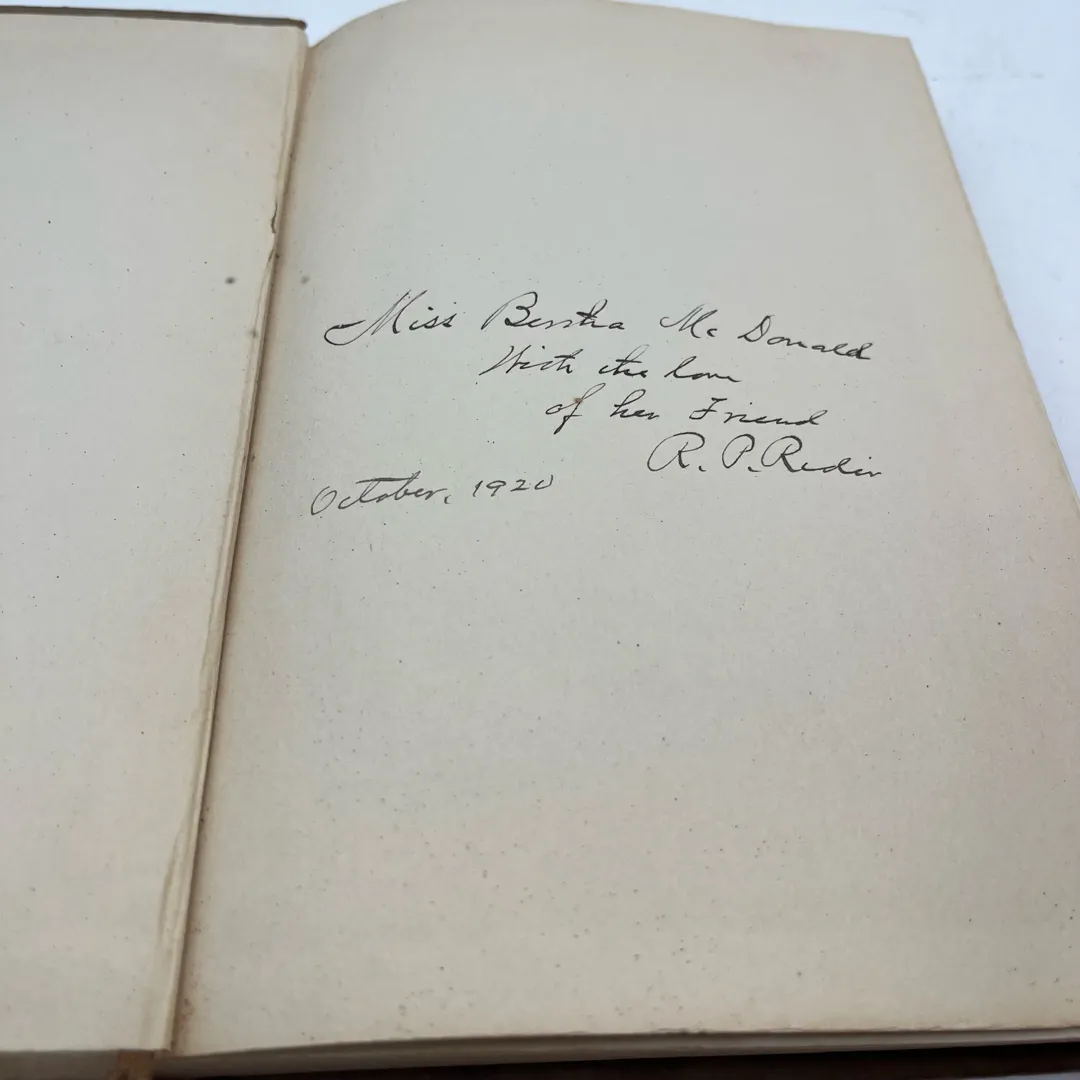 Miss Bertha McDonald
With the love
of her Friend
R. P. Reder
October, 1920